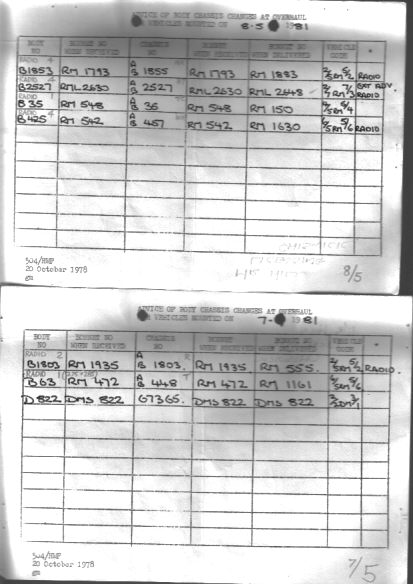 ADVICE OF BODY CHASSIS CHANGES AT OVERHAUL
VEHICLES MOUNTED ON 8.5 1981
BODY NO BONNET NO WHEN RECEIVED CHASSIS NO BONNET WHEN RECEIVED BONNET NO WHEN DELIVERED VEHICLE CODE *
RADIO 4
B1853 RM 1793 A B 1855 RM 1793 RM 1883 RADIO
B2527 RML 2630 A B 2527 RML 2630 RML 2648 EXT ADV. RADIO
RADIO 1
B 35 RM 548 A B 36 RM 548 RM 150
RADIO 4
B425 RM 542 A B 457 RM 542 RM 1630 RADIO
504/HMF
20 October 1978
8/5
ADVICE OF BODY CHASSIS CHANGES AT OVERHAUL
VEHICLES MOUNTED ON 7- 1981
BODY NO BONNET NO WHEN RECEIVED CHASSIS NO BONNET WHEN RECEIVED BONNET NO WHEN DELIVERED VEHICLE CODE *
RADIO 2
B1803 RM 1935 A B 1803. RM 1935 RM 555. RADIO.
RADIO 1
B63 RM 472 A B 448 RM 472 RM 1161
D 822 DMS 822 67365. DMS 822 DMS 822
504/HMF
20 October 1978
7/5